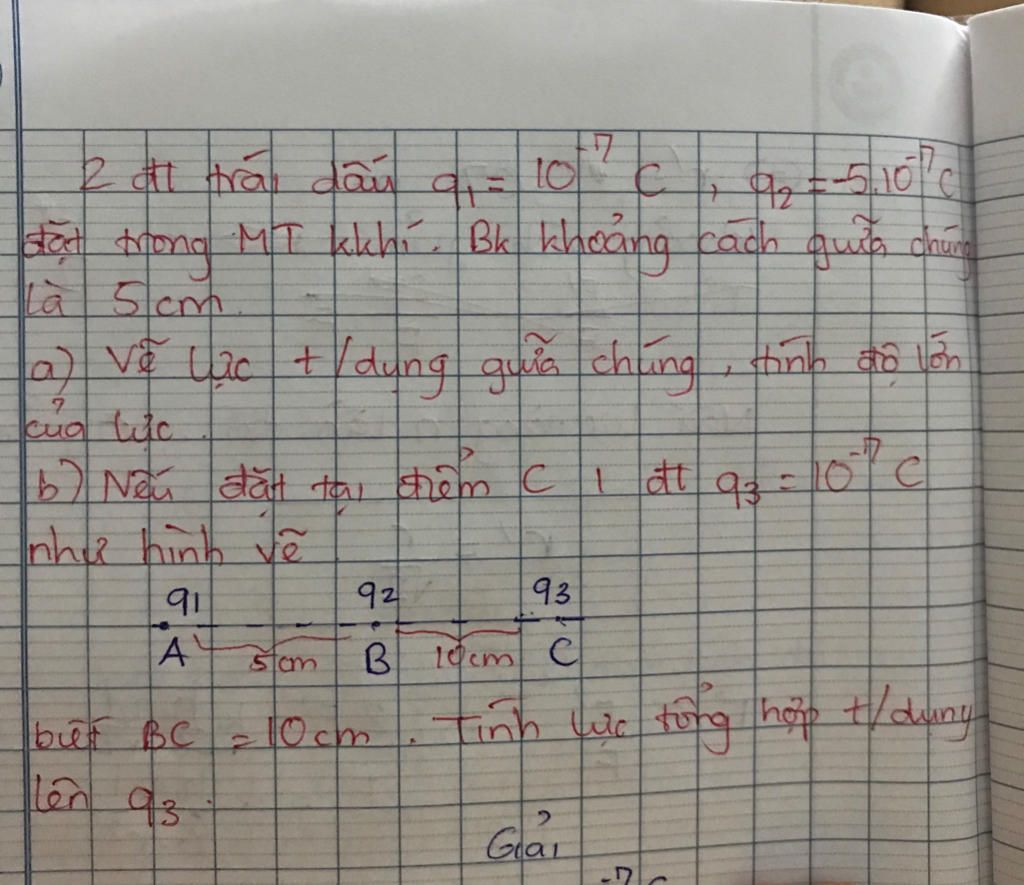 2 đt trái dấu q₁ = 10⁻⁷ C , q₂ = -5.10⁻⁷ C
đặt trong MT kkhí. Bk khoảng cách giữa chúng
là 5 cm.
a) Vẽ lực t/dụng giữa chúng, tính độ lớn
của lực.
b) Nếu đặt tại điểm C 1 đt q₃ = 10⁻⁷ C
như hình vẽ
q₁ q₂ q₃
A 5cm B 10cm C
biết BC = 10cm. Tính lực tổng hợp t/dụng
lên q₃.
Giải
⁻⁷ C